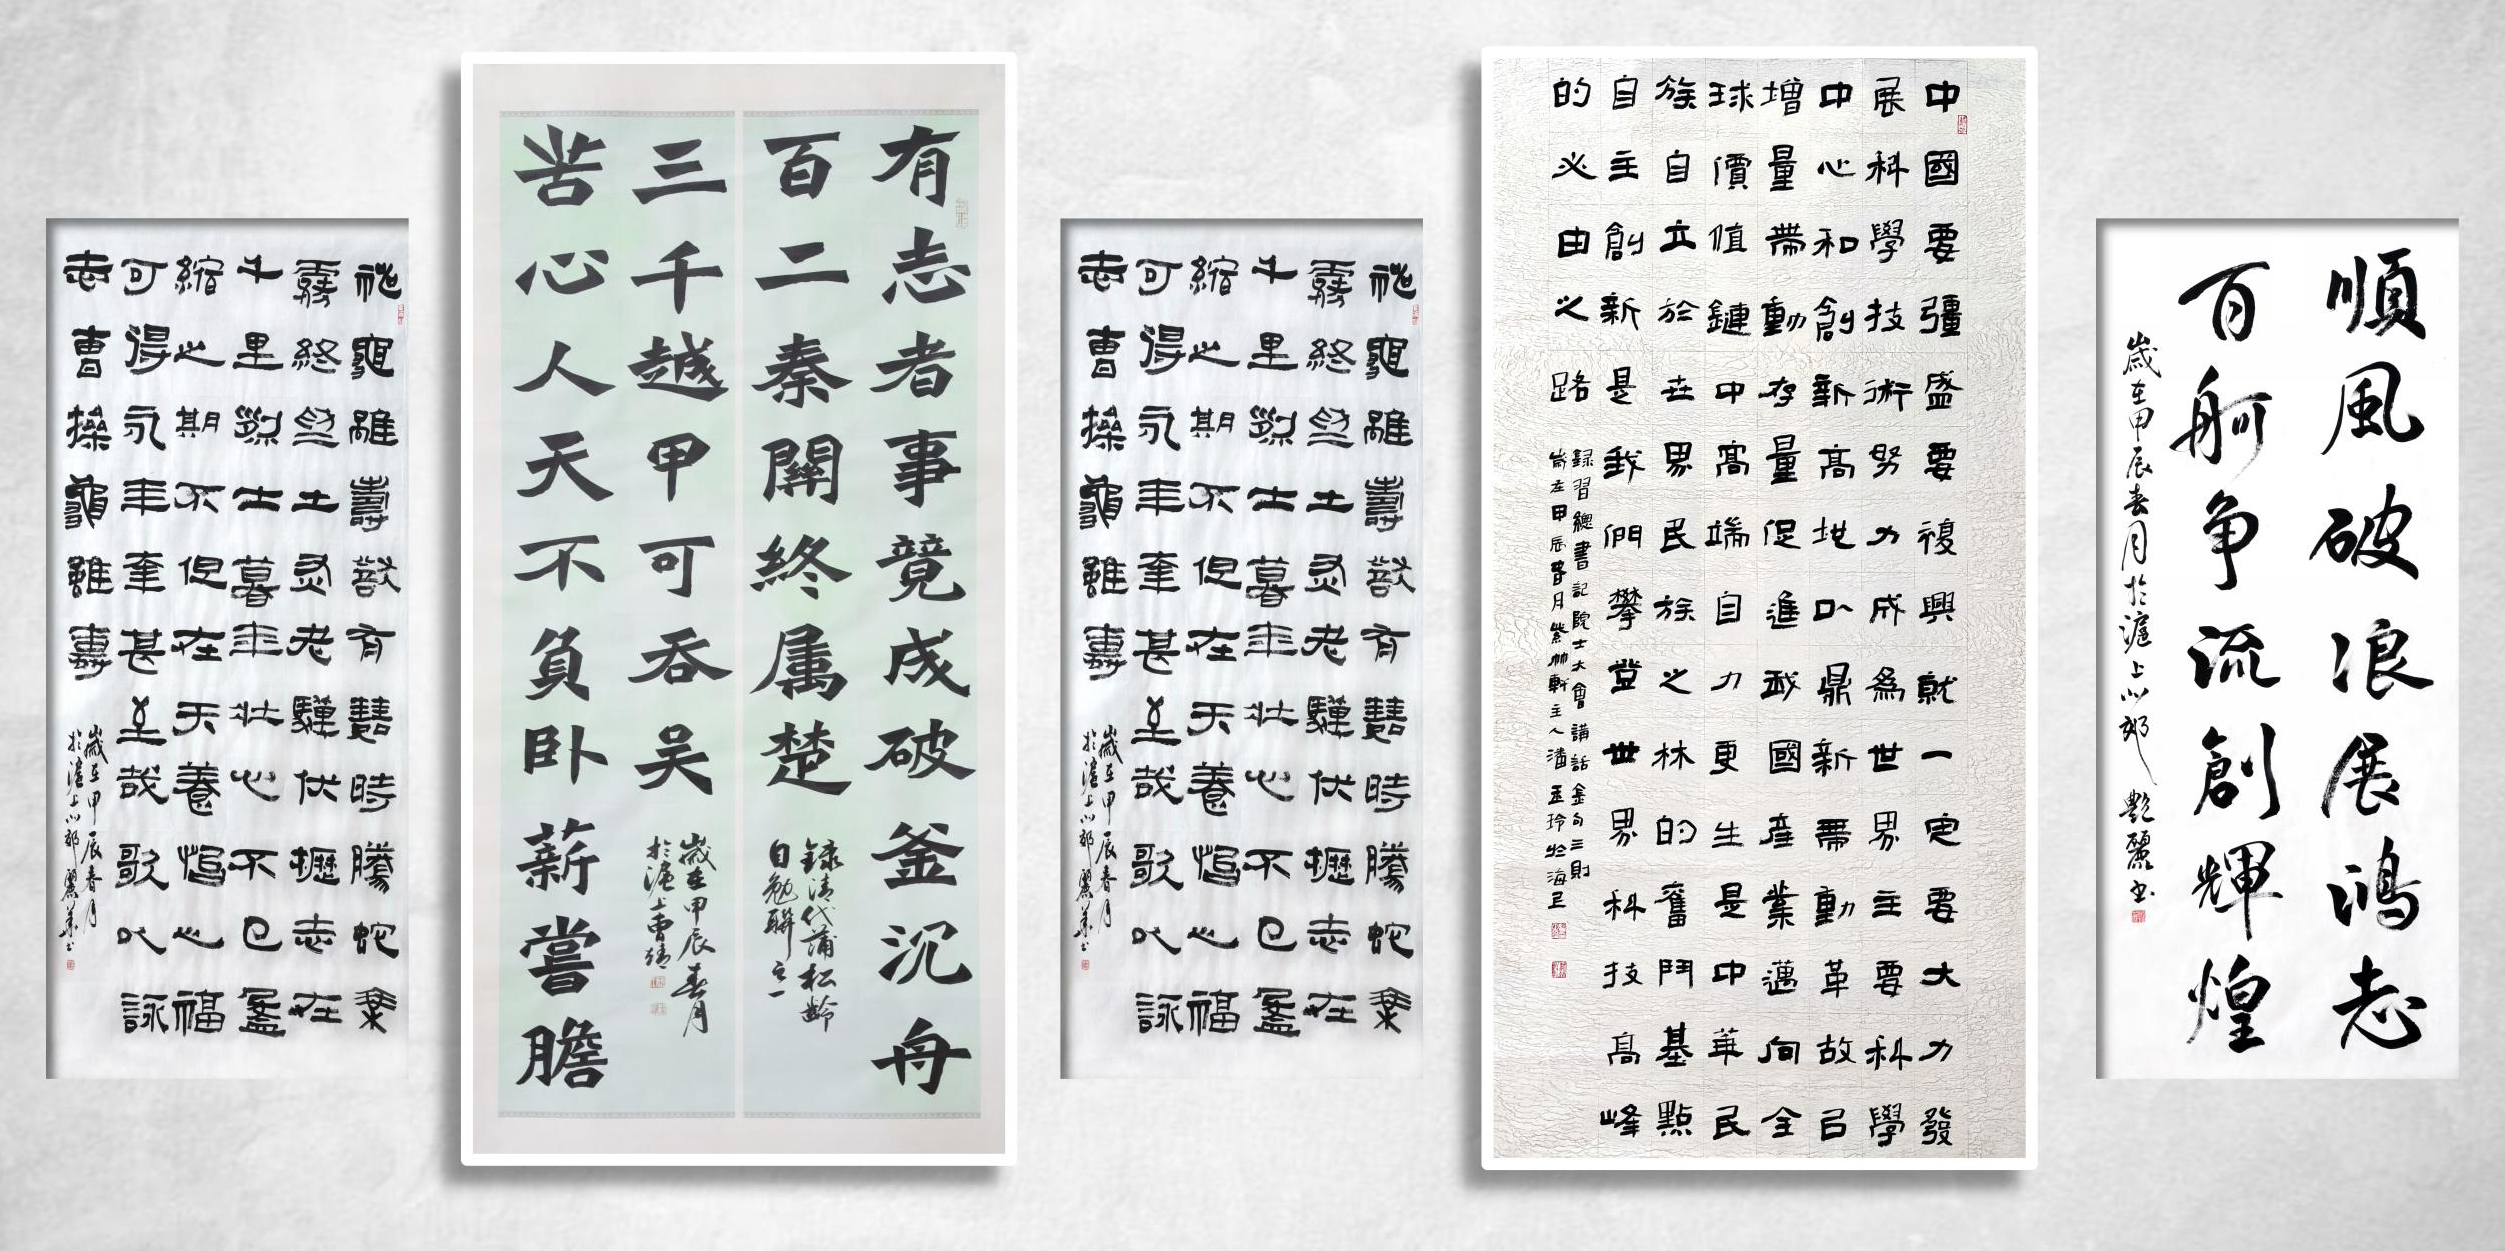 神龜雖壽猷有竟時騰蛇乘
霧終為土灰老驥伏櫪志在
千里烈士暮年壯心不已盈
縮之期不但在天養怡之福
可得永年幸甚至哉歌以詠
志曹操龜雖壽
歲在甲辰春月
於滬上
有志者事竟成破釜沉舟
百二秦關終属楚
錄清代蒲松齡
自勉聯之一
三千越甲可吞吴
歲在甲辰春月
於滬上曹靖
苦心人天不負卧薪嘗膽
神龜雖壽猷有竟時騰蛇乘
霧終為土灰老驥伏櫪志在
千里烈士暮年壯心不已盈
縮之期不但在天養怡之福
可得永年幸甚至哉歌以詠
志曹操龜雖壽
歲在甲辰春月
於滬上
中國要彊盛要復興就一定要大力發
展科學技術努力成為世界主要科學
中心和創新高地以鼎新帶動革故以
增量帶動存量促進我國產業邁向全
球價值鏈中高端自力更生是中華民
族自立於世界民族之林的奮鬥基點
自主創新是我們攀登世界科技高峰
的必由之路
錄習總書記院士大會講話金句三則
歲在甲辰春月紫竹軒主人潘玉玲於海上
順風破浪展鴻志
百舸争流創輝煌
歲在甲辰春月於滬上艷麗書